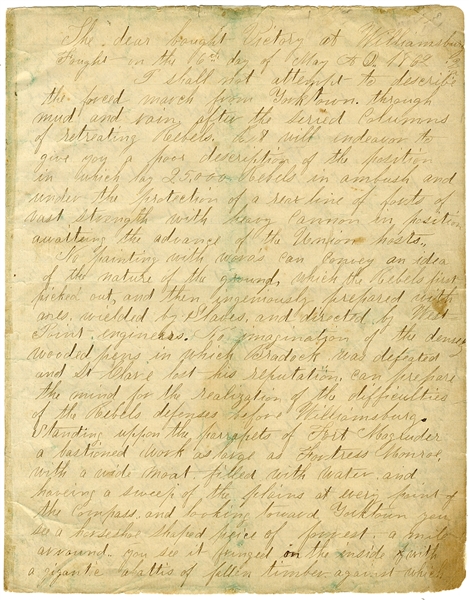 The "dear bought Victory at Williamsburg
Fought in the 6th day of May A D. 1862
I shall not attempt to describe
the forced march from Yorktown. through
mud and rain, after the serried Columns
of retreating Rebels. But will indeavor to
give you a poor description of the position
in which lay 25,000 Rebels in ambush and
under the protection of a rear line of forts of
vast strength with heavy Cannon in position
awaitting the advance of the Union hosts.
No painting with words can convey an idea
of the nature of the ground, which the Rebels first
picked out, and then ingeniously prepared with
axes, wielded by Slaves, and directed by West
Point. engineers. No imagination of the densely
wooded pines in which Bradock was defeated
and St Clare lost his reputation, can prepare
the mind for the realization of the difficulties
of the Rebels defenses before Williamsburg.
Standing uppon the parrapets of Fort Magruder
a bastioned work as large as Fortress Monroe,
with a wide Moat. filled with water. and
having a sweep of the plains at every point of
the Compass. and looking toward Yorktown you
see a horseshoe shaped piece of forrest. a mile
arround. you see it fringed on the inside with
a gigantic abattis of fallen timber. against which